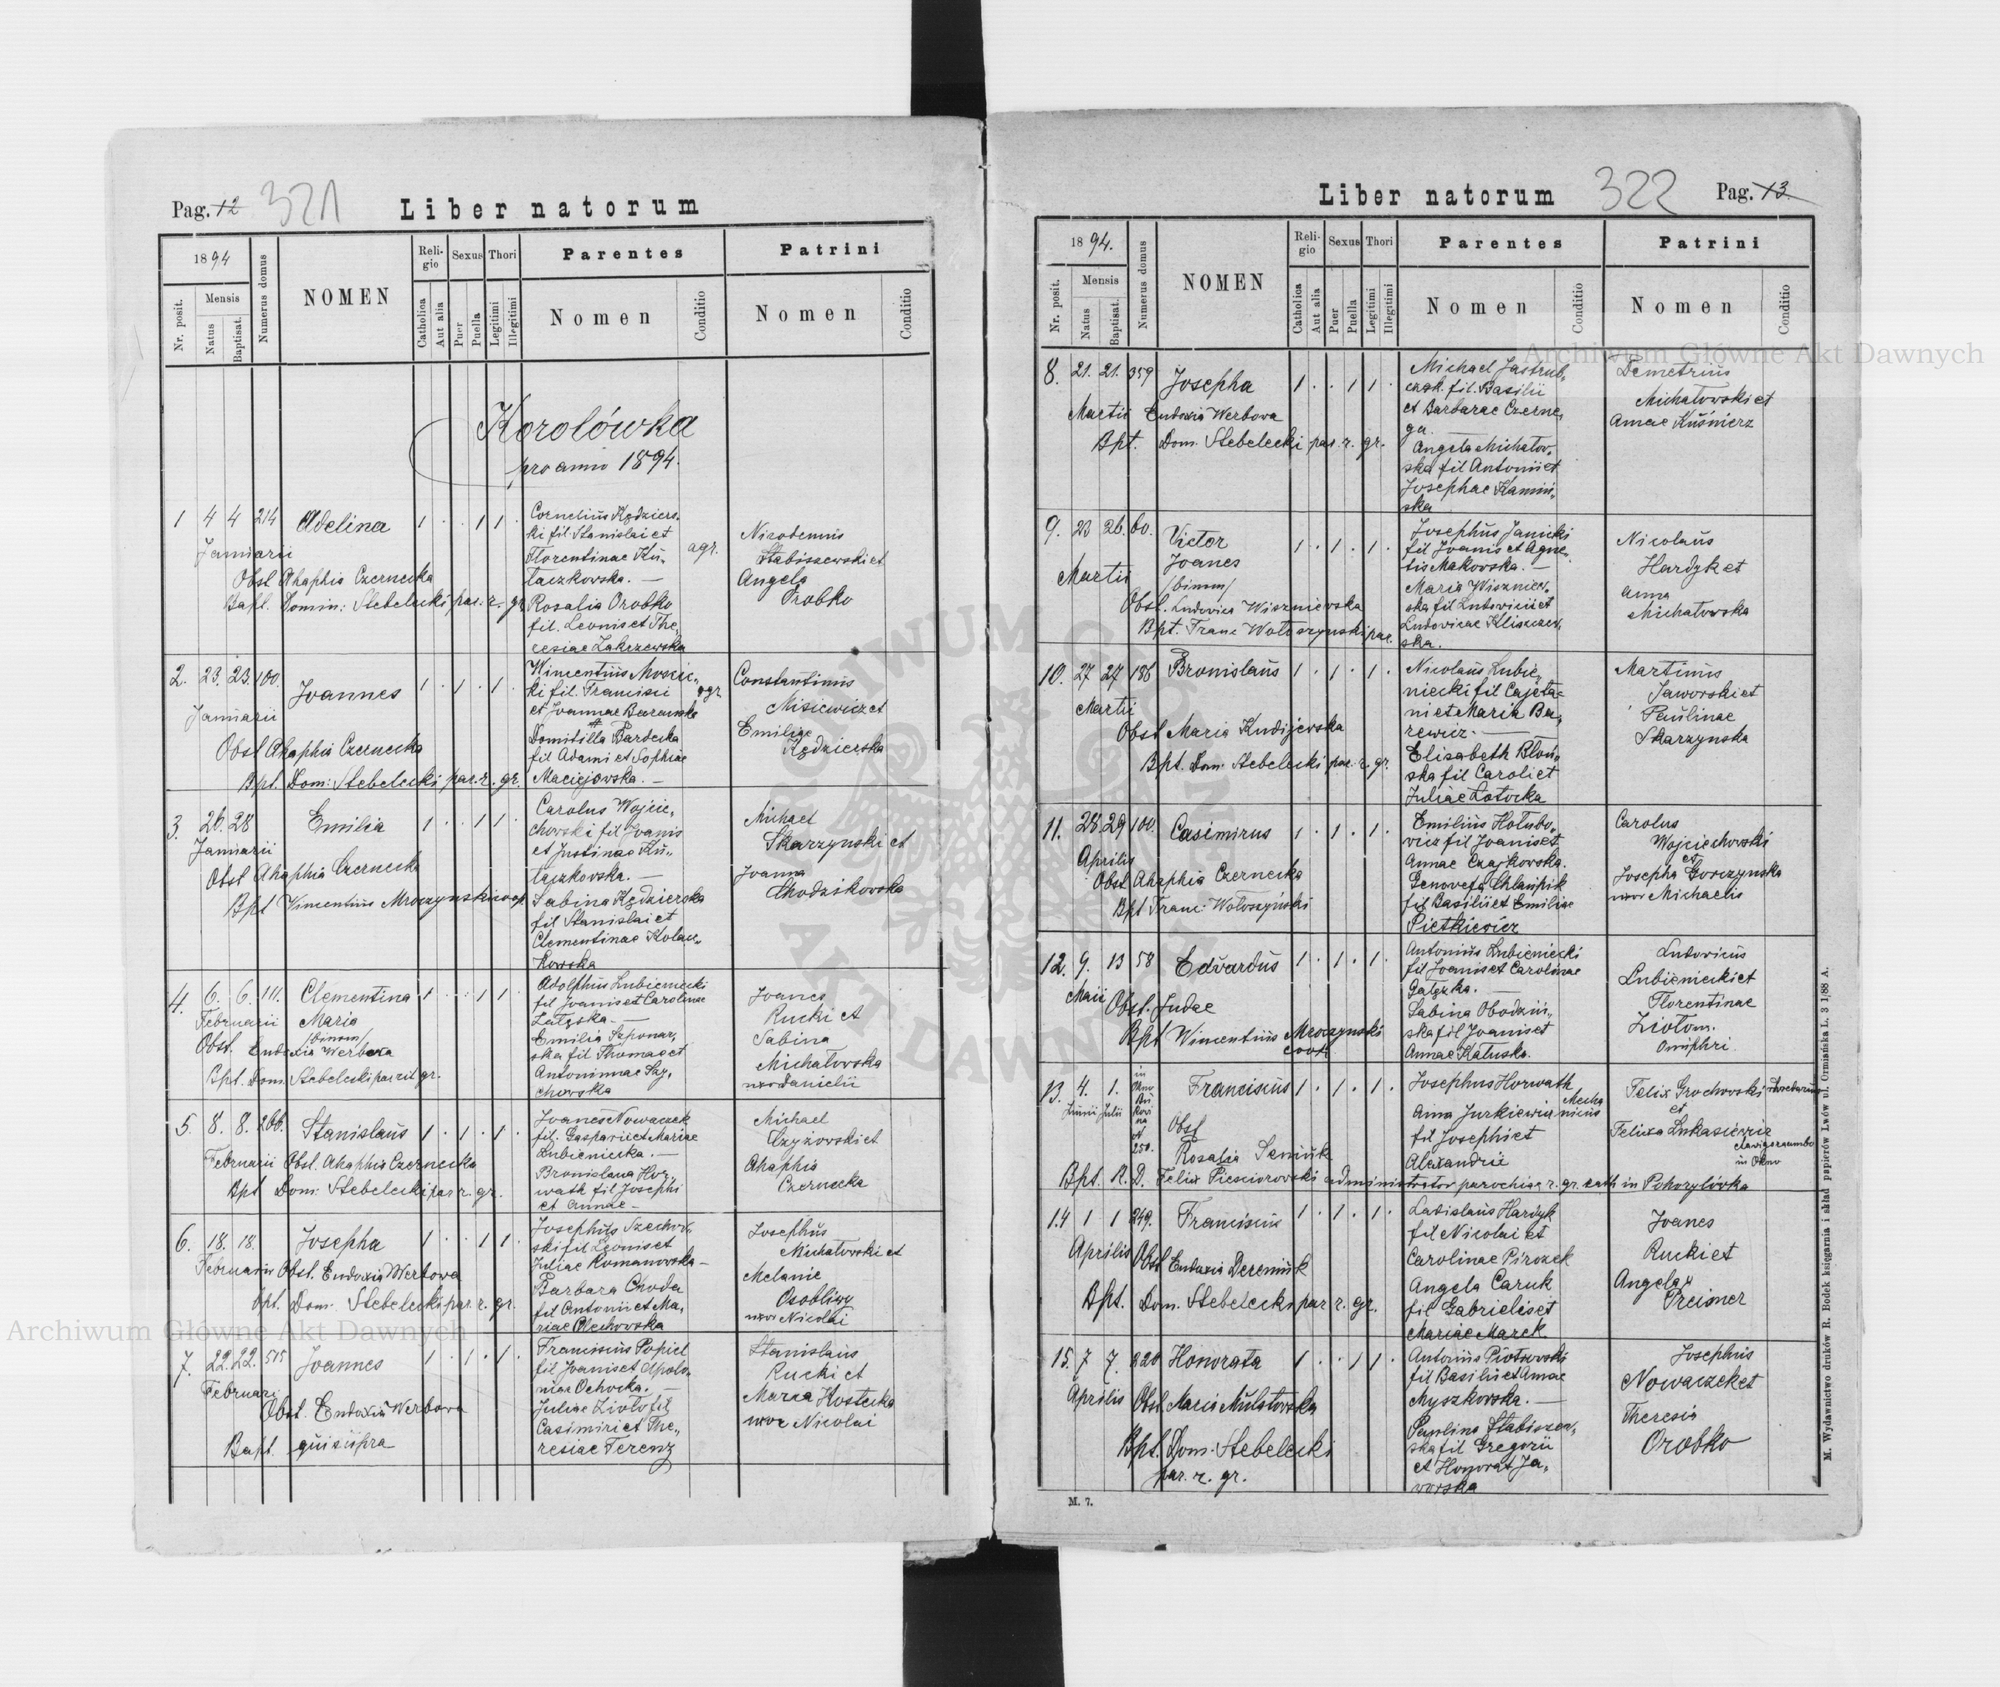 Pag. 12 321 Liber natorum
1894
Nr. posit.
Mensis
Natus
Baptisat.
Numerus domus
NOMEN
Religio
Catholica
Aut alia
Sexus
Puer
Puella
Thori
Legitimi
Illegitimi
Parentes
Nomen
Conditio
Patrini
Nomen
Conditio
Korolówka
pro anno 1894.
1 4 4 214 Adelina 1 . . 1 1 .
Januarii
Obst Ahaphia Czernecka
Bapt. Domin: Stebelecki par. r. gr.
Cornelius Kędziers-
ki fil. Stanislai et
Florentinae Ku-
laczkowska. —
Rosalia Orobko
fil. Leonis et The-
resiae Zakrzewska
agr.
Nicodemus
Stabiszewski et
Angela
Orobko
2. 23. 23. 100. Joannes 1 . 1 . 1 .
Januarii
Obst Ahaphia Czernecka
Bpt. Dom: Stebelecki par. r. gr.
Wincentius
ki fil. Francisci
et Joannae
Domitilla Bardecka
fil Adami et Sophiae
Maciejovska. —
agr
Constantinus
Misiewicz et
Emilia
Kędzierska
3. 26. 28 Emilia 1 . . 1 1 .
Januarii
Obst Ahaphia Czernecka
Bpt Wincentius Mroczynski coop
Carolus Wojcie-
chowski fil Joanis
et Justinae Ku-
laczkowska. —
Sabina Kędzierska
fil Stanislai et
Clementinae Kolan-
kowska
Michael
Skarzynski et
Joanna
Chodzikowska
4. 6. 6. 111. Clementina 1 . . 1 1 .
Februarii Maria
(binom)
Obst. Eudoxia Werbova
Bpt. Dom. Stebelecki par rit gr.
Adolphus Lubieniecki
fil Joanis et Carolinae
Załęska —
Emilia Szponar-
ska fil Thomae et
Antoninae Saj-
chowska
Joanes
Rucki et
Sabina
Michałowska
uxor Danielii
5. 8. 8. 266. Stanislaus 1 . 1 . 1 .
Februarii Obst. Ahaphia Czernecka
Bpt Dom: Stebelecki par r. gr.
Joanes Nowaczek
fil. Gasparii et Mariae
Lubieniecka. —
Bronislava Hor-
wath fil Josephi
et Annae —
Michael
Czyzowski et
Ahaphia
Czernecka
6. 18. 18. Josepha 1 . . 1 1 .
Februarii Obst. Eudoxia Werbowa
Bpt. Dom. Stebelecki par. r. gr.
Josephus Szechow-
ski fil Leonis et
Juliae Romanowska —
Barbara Choda
fil Antonii et Ma-
riae Olechowska
Josephus
Michałowski et
Melanie
Osobliwy
uxor Nicolai
7. 22. 22. 515 Joannes 1 . 1 . 1 .
Februari
Obst. Eudoxia Werbowa
Bapt. qui supra
Franciscus Popiel
fil Joanis et Apolo-
niae Ochocka. —
Juliae Ziolo fil
Casimiri et The-
resiae Ferenz
Stanislaus
Rucki et
Maria Kostecka
uxor Nicolai
Liber natorum 322 Pag. 13.
1894.
Nr. posit.
Mensis
Natus
Baptisat.
Numerus domus
NOMEN
Religio
Catholica
Aut alia
Sexus
Puer
Puella
Thori
Legitimi
Illegitimi
Parentes
Nomen
Conditio
Patrini
Nomen
Conditio
8. 21. 21. 359 Josepha 1 . . 1 1 .
Martii Eudoxia Werbova
Bpt. Dom. Stebelecki par. r. gr.
Michael Jastrub-
czak. fil. Basilii
et Barbarae Czerne-
ga —
Angela Michałow-
ska fil Antonii et
Josephae Kamiń-
ska
Demetrius
Michałowski et
Annae Kuśnierz
9. 23 26. 60. Victor 1 . 1 . 1 .
Joanes
Martii (binom)
Obst. Ludovica Wiszniewska
Bpt. Franc Wołoszynski par.
Josephus Janicki
fil Joanis et Agne-
tis Makowska. —
Maria Wiszniew-
ska fil Ludovici et
Ludovicae Kliszczew-
ska.
Nicolaus
Hardyk et
Anna
Michałowska
10. 27 27 186 Bronislaus 1 . 1 . 1 .
Martii
Obst Maria Kudijevska
Bpt. Dom. Stebelecki par. r. gr.
Nicolaus Lubie-
niecki fil Cajeta-
ni et Maria Bu-
rewicz. —
Elisabeth Błoń-
ska fil Caroli et
Juliae Łotocka
Martinus
Jaworski et
Paulinae
Skarzynska
11. 28 29 100. Casimirus 1 . 1 . 1 .
Aprilis
Obst Ahaphia Czernecka
Bpt Franc: Wołoszyński
Emilius Hołubo-
wicz fil Joanis et
Annae Czajkowska.
Genovefa Chlaupik
fil Basilii et Emiliae
Pietkiewicz
Carolus
Wojciechowski
et
Josepha Gorczynska
uxor Michaelis
12. 9. 13 58 Edvardus 1 . 1 . 1 .
Maii Obst. Judae
Bpt Wincentius Mroczynski
coop
Antonius Lubieniecki
fil Joanis et Carolinae
Gałęzka. —
Sabina Obodziń-
ska fil Joanis et
Annae Katuska.
Ludovicus
Lubieniecki et
Florentinae
Ziołom.
Onuphri
13. 4. 1. Franciscus 1 . 1 . 1 .
Junii Julii
in
Okno
Bu
kowi
na
at
250.
Obst
Rosalia Semiuk
Bpt. R. D. Felix Piesciorowski administrator parochiae r. gr. cath in Pohorylówka
Josephus Horwath
Anna Jurkiewicz
fil Josephi et
Alexandrii
Mecha
nicus
Felix Grochowski
et
Felixa Lukasiewicz
in Okno
14 1 1 249. Franciscus 1 . 1 . 1 .
Aprilis Obst Eudoxia Deremiuk
Bpt. Dom. Stebelecki par r. gr.
Ladislaus Hardyk
fil Nicolai et
Carolinae Pirozek
Angela Caruk
fil Gabrielis et
Mariae Marek
Joanes
Rucki et
Angela
Preisner
15. 7 7. 220 Honorata 1 . . 1 1 .
Aprilis Obst Maria
Bpt. Dom: Stebelecki
par. r. gr.
Antonius Piotrowski
fil Basilii et Annae
Myszkowska. —
Paulina Stabiszew-
ska fil Gregorii
et Honorat Ja-
worska
Josephus
Nowaczek et
Theresia
Orobko
M. 7.
M. Wydawnictwo druków R. Bodek księgarnia i skład papierów Lwów ul. Ormańska L. 3 1/88 A.
Archiwum Główne Akt Dawnych
Archiwum Główne Akt Dawnych